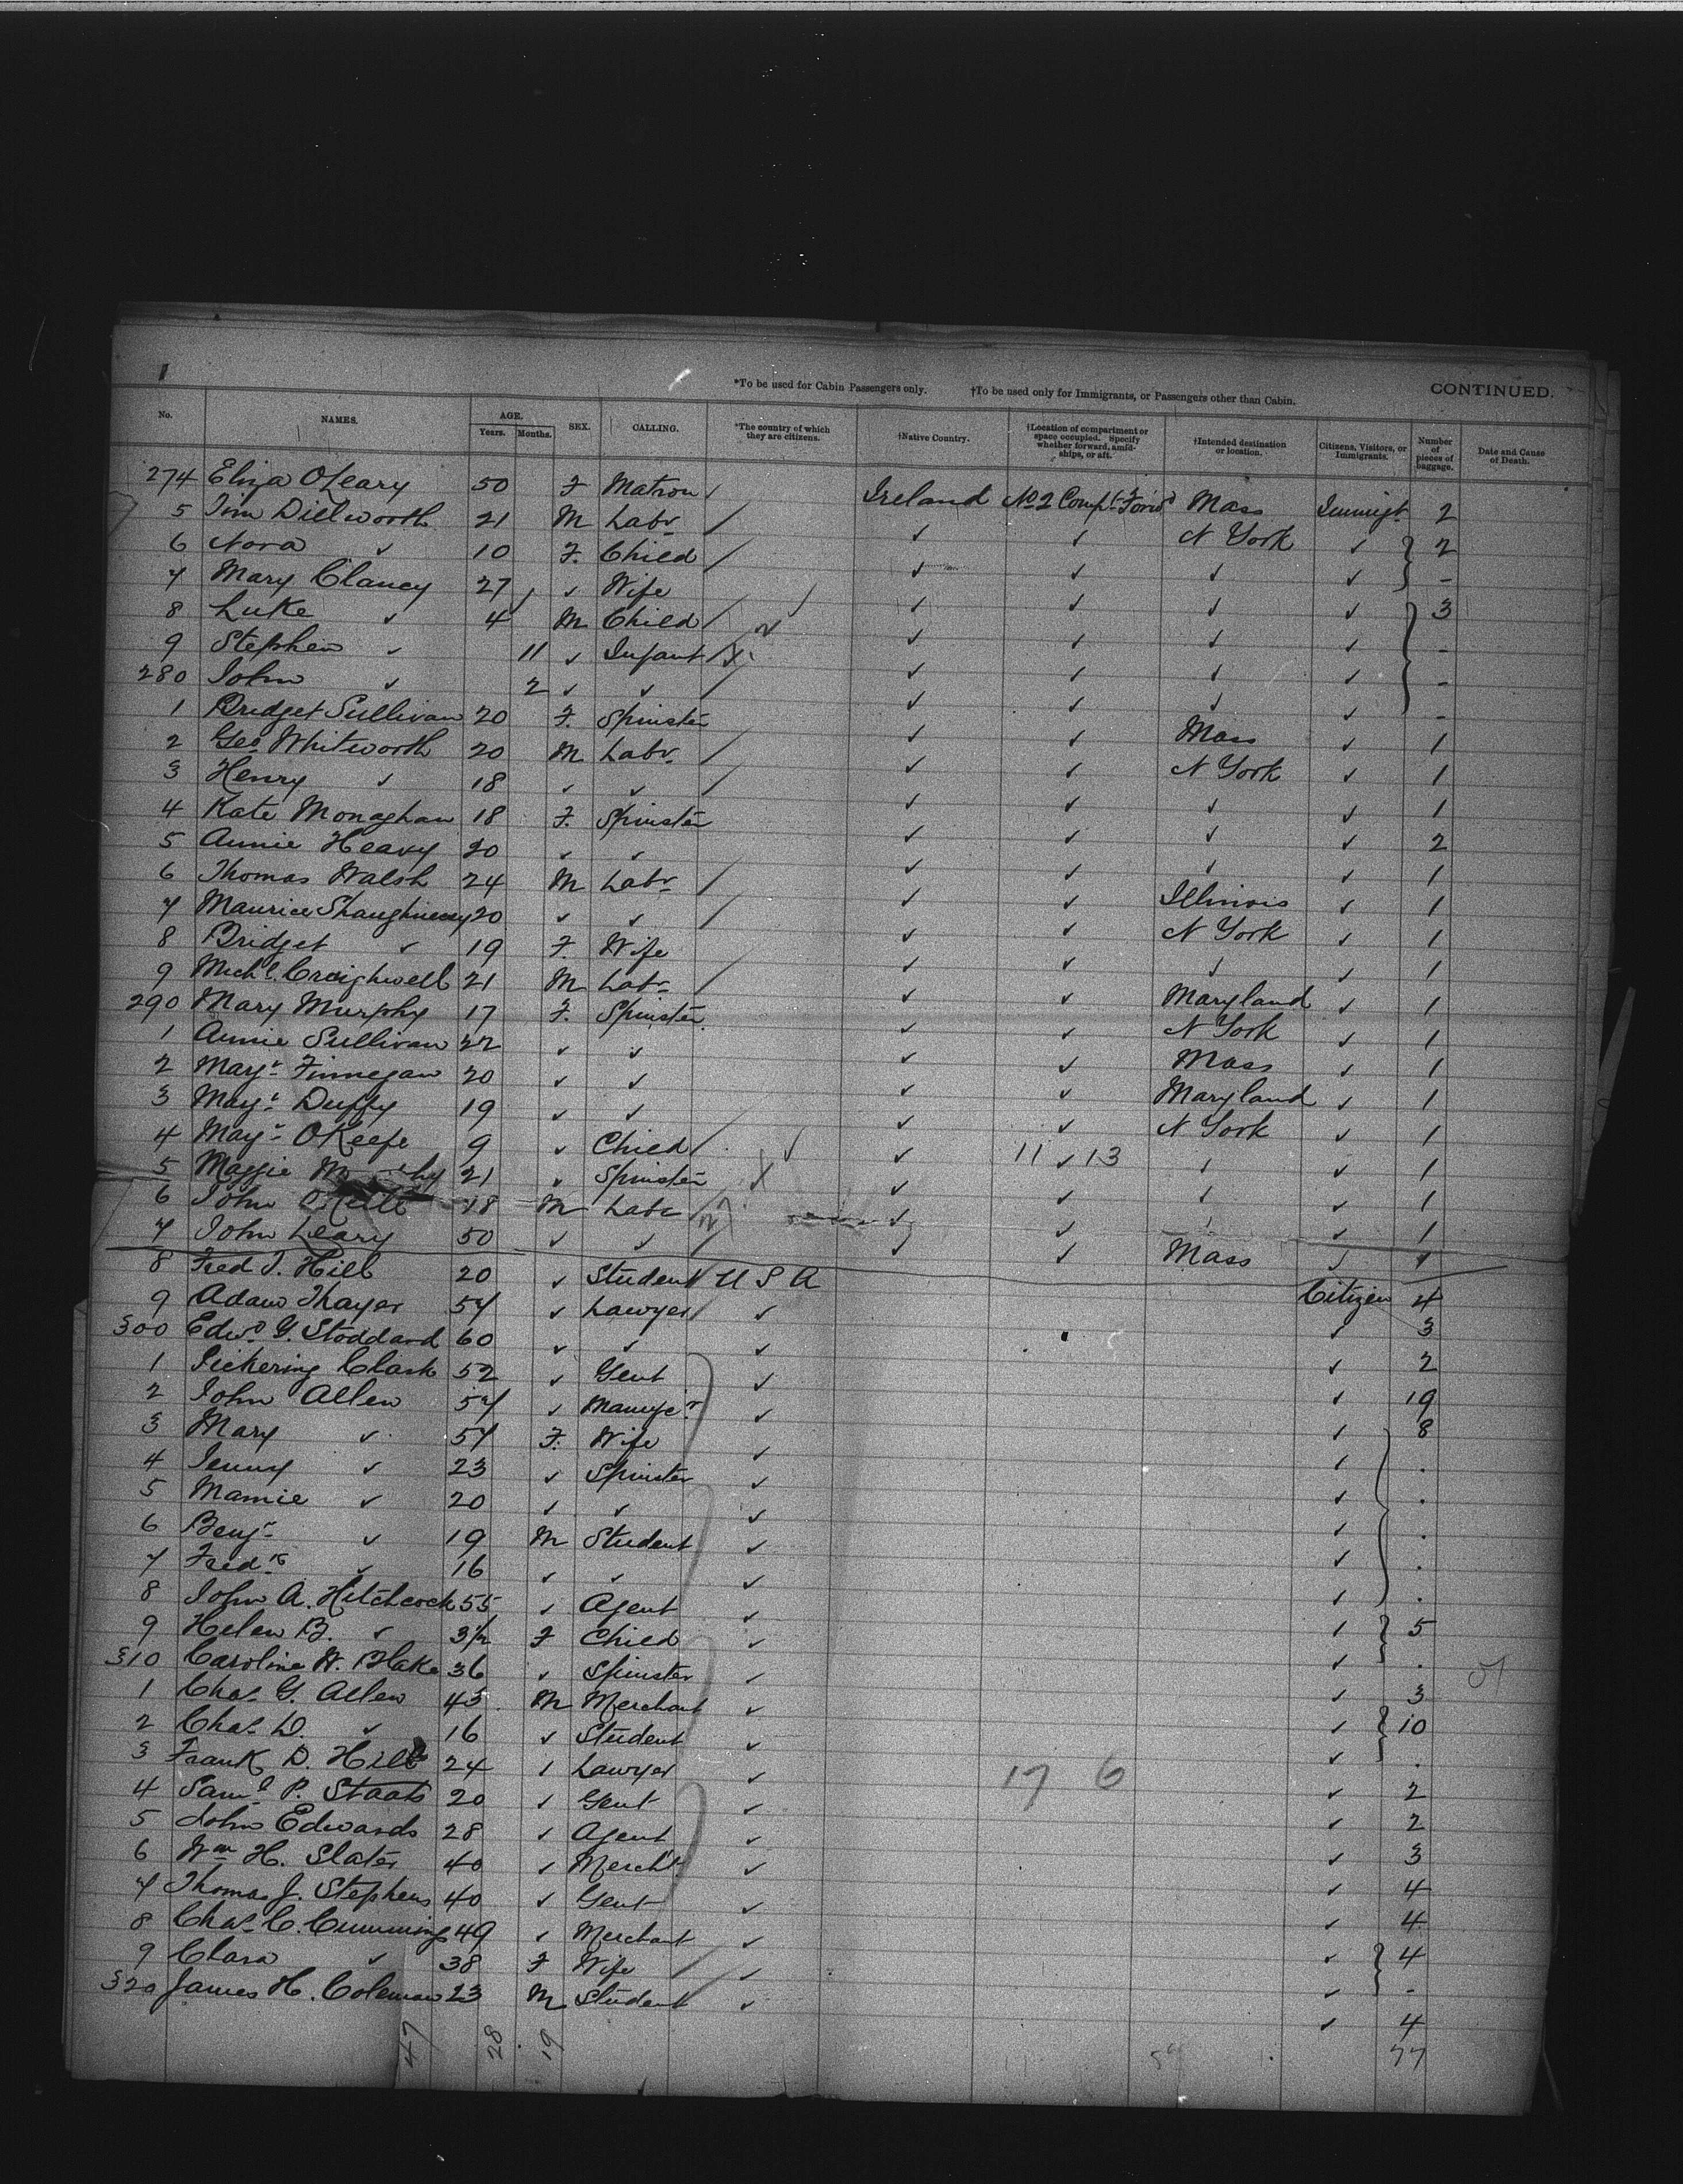 *To be used for Cabin Passengers only. †To be used only for Immigrants, or Passengers other than Cabin. CONTINUED.
No. NAMES. AGE. Years. Months. SEX. CALLING. *The country of which they are citizens. †Native Country. †Location of compartment or space occupied. Specify whether forward, amidships, or aft. †Intended destination or location. Citizens, Visitors, or Immigrants. Number of pieces of baggage. Date and Cause of Death.
274 Eliza OLeary 50 F Matron Ireland No 2 Compt Forwd Mass Immigt 2
5 Tim Dillworth 21 M Labr ✓ ✓ N York ✓ 2
6 Nora ✓ 10 F. Child ✓ ✓ ✓ ✓ -
7 Mary Clancy 27 ✓ Wife ✓ ✓ ✓ ✓ 3
8 Luke ✓ 4 M Child ✓ ✓ ✓ ✓ -
9 Stephen ✓ 11 ✓ Infant ✓ ✓ ✓ ✓ -
280 John ✓ 2 ✓ ✓ ✓ ✓ ✓ ✓ -
1 Bridget Sullivan 20 F. Spinster ✓ ✓ Mass ✓ 1
2 Geo Whitworth 20 M Labr ✓ ✓ N York ✓ 1
3 Henry ✓ 18 ✓ ✓ ✓ ✓ ✓ ✓ 1
4 Kate Monaghan 18 F. Spinster ✓ ✓ ✓ ✓ 2
5 Annie Heavy 20 ✓ ✓ ✓ ✓ ✓ ✓ 1
6 Thomas Walsh 24 M Labr ✓ ✓ Illinois ✓ 1
7 Maurice Shaughnessy 20 ✓ ✓ ✓ ✓ N York ✓ 1
8 Bridget ✓ 19 F. Wife ✓ ✓ ✓ ✓ 1
9 Michl Creighwell 21 M Labr ✓ ✓ Maryland ✓ 1
290 Mary Murphy 17 F. Spinster ✓ ✓ N York ✓ 1
1 Annie Sullivan 22 ✓ ✓ ✓ ✓ Mass ✓ 1
2 Mary Finnegan 20 ✓ ✓ ✓ ✓ Maryland ✓ 1
3 Mayt Duffy 19 ✓ ✓ ✓ ✓ N York ✓ 1
4 Mayt OKeefe 9 ✓ Child ✓ 11 ✓ 13 ✓ ✓ 1
5 Maggie 21 ✓ Spinster ✓ ✓ ✓ ✓ 1
6 John 18 M Labr ✓ ✓ ✓ ✓ 1
7 John Leary 50 ✓ ✓ ✓ ✓ Mass ✓ 1
8 Fred J. Hill 20 ✓ Student U S A Citizen 4
9 Adam Thayer 57 ✓ Lawyer ✓ ✓ 3
300 Edwd Y. Stoddard 60 ✓ ✓ ✓ ✓ 2
1 Pickering Clark 52 ✓ Gent ✓ ✓ 19
2 John Allen 57 ✓ ✓ ✓ 8
3 Mary ✓ 57 F. Wife ✓ ✓ .
4 Jenny ✓ 23 ✓ Spinster ✓ ✓ .
5 Mamie ✓ 20 ✓ ✓ ✓ ✓ .
6 Benj ✓ 19 M Student ✓ ✓ .
7 Fredk ✓ 16 ✓ ✓ ✓ ✓ .
8 John A. Hitchcock 55 ✓ Agent ✓ ✓ 5
9 Helen B. ✓ 3½ F Child ✓ ✓ .
310 Caroline W. Blake 36 ✓ Spinster ✓ ✓ 3
1 Chas G. Allen 45 M Merchant ✓ ✓ 10
2 Chas D. ✓ 16 ✓ Student ✓ ✓ .
3 Frank D. Hill 24 ✓ Lawyer ✓ 17 6 ✓ 2
4 Saml P. Staats 20 ✓ Gent ✓ ✓ 2
5 John Edwards 28 ✓ Agent ✓ ✓ 3
6 Wm H. Slater 40 ✓ Mercht ✓ ✓ 4
7 Thomas J. Stephens 40 ✓ Gent ✓ ✓ 4
8 Chas C. Cumming 49 ✓ Merchant ✓ ✓ 4
9 Clara ✓ 38 F Wife ✓ ✓ -
320 James H. Coleman 23 M Student ✓ ✓ 4
47 28 19 77